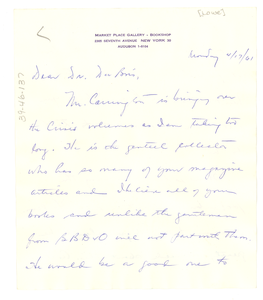 MARKET PLACE GALLERY - BOOKSHOP
2305 SEVENTH AVENUE NEW YORK 30
AUDUBON
Monday 4/17/61
Dear Dr. Du Bois,
Mr. Carrington is bringing over
the Crisis volumes as I am taking the
boy. He is the central collector
who has so many of your magazine
articles and I believe all of your
books and unlike the gentleman
from BBD&O will not part with them.
He would be a good one to